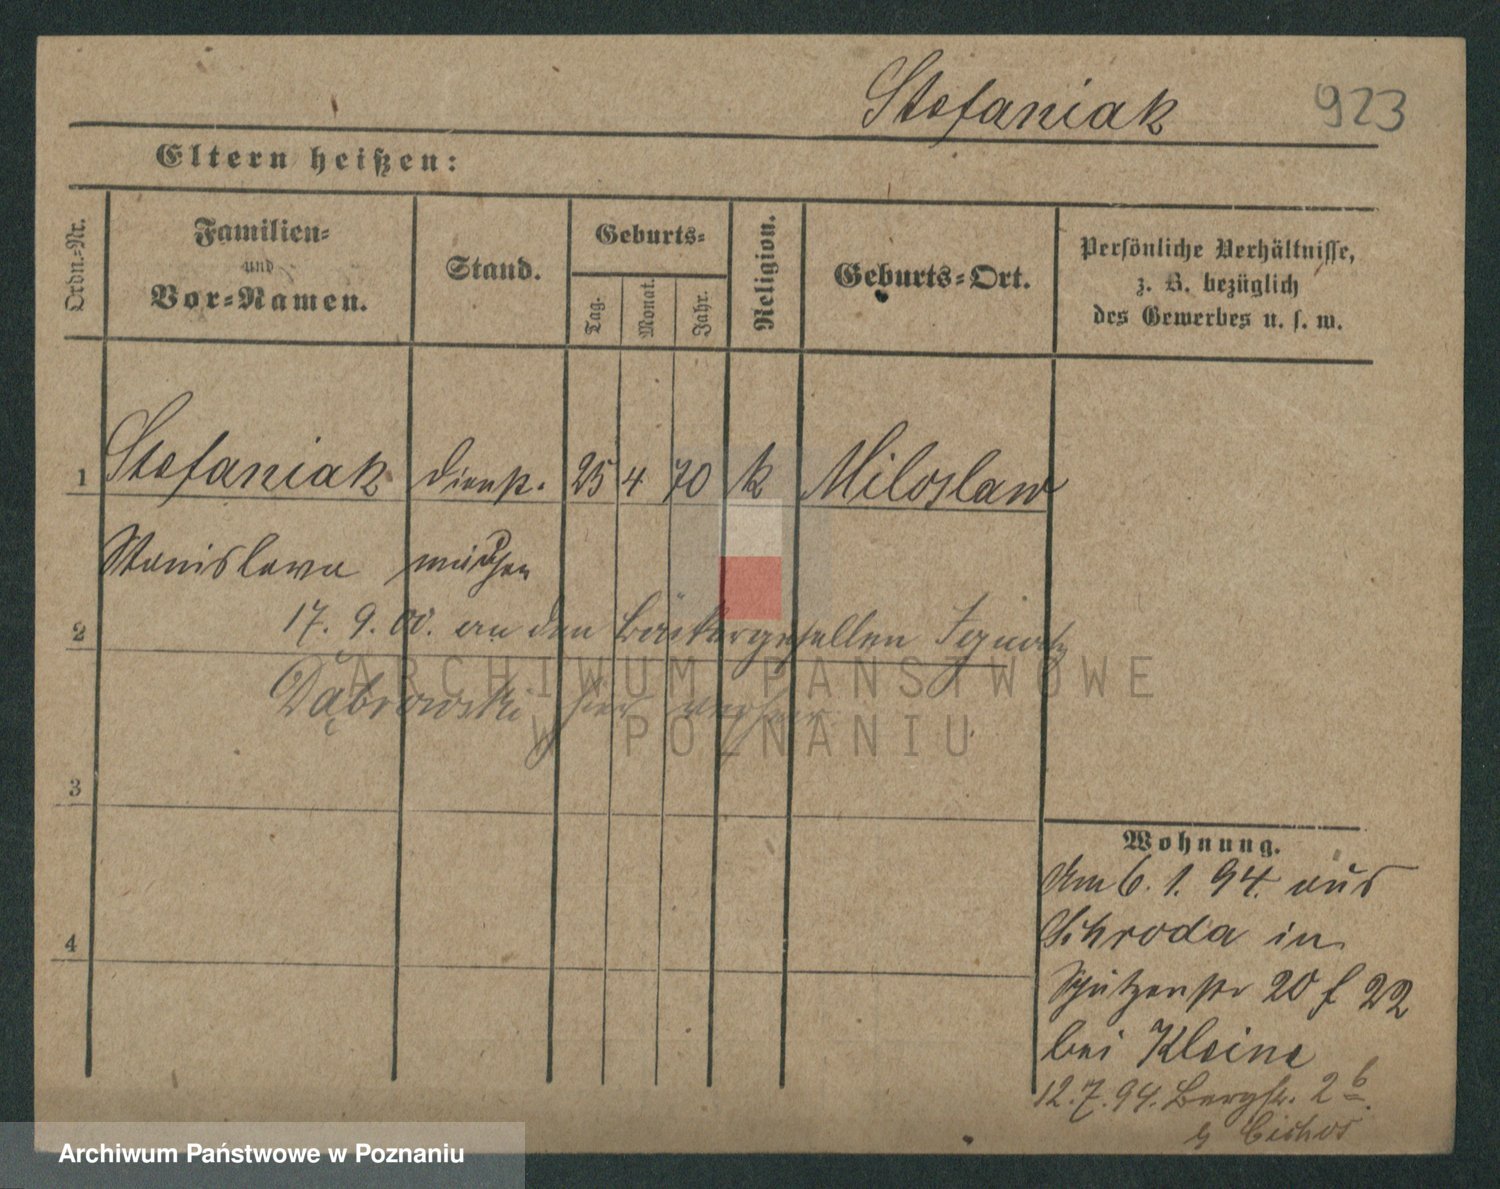 Stefaniak 923
Eltern heißen:
Ordn.-Nr.
Familien-
und
Vor-Namen.
Stand.
Geburts-
Tag.
Monat.
Jahr.
Religion.
Geburts-Ort.
Persönliche Verhältnisse,
z. B. bezüglich
des Gewerbes u. s. w.
1 Stefaniak Dienst. 25 4 70 k Miloslaw
Stanislawa mädchen
17. 9. 00. an den Bäckergesellen Ignatz
2
Dąbrowski hier verh
ARCHIWUM PAŃSTWOWE
W POZNANIU
3
4
Wohnung.
Am 6. 1. 94. aus
Schroda in
Schützenstr 20 f 22
bei Kleine
12. 7. 94. Bergstr. 2b.
Archiwum Państwowe w Poznaniu